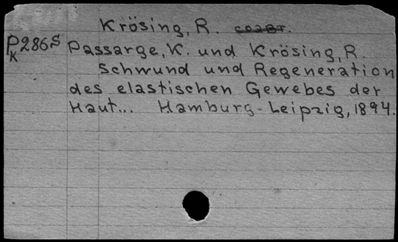 Krösing, R. соавт.
P 286S Passarge, K. und Krösing, R.
K
Schwund und Regeneration
des elastischen Gewebes der
Haut... Hamburg-Leipzig, 1894.